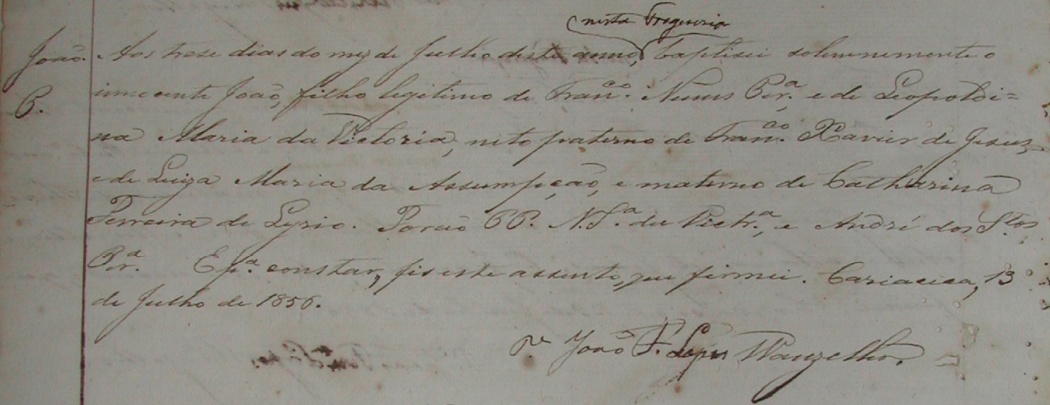 nesta Freguesia
João. Aos treze dias do mez de Julho deste anno, baptisei solemnemente o
P. innocente João, filho legitimo de Franco. Nunes Pera. e de Leopoldi=
na Maria da Victoria, neto paterno de Franco. Xavier de Jesus,
e de Luiza Maria da Assumpção, e materno de Catharina
Ferreira de Lyrio. Forão PP. N. Sra. da Victa., e André dos Stos
Pera. E pa. constar, fis este assento, que firmei. Cariacica, 13
de Julho de 1856.
João F. Lopes Wanzelher